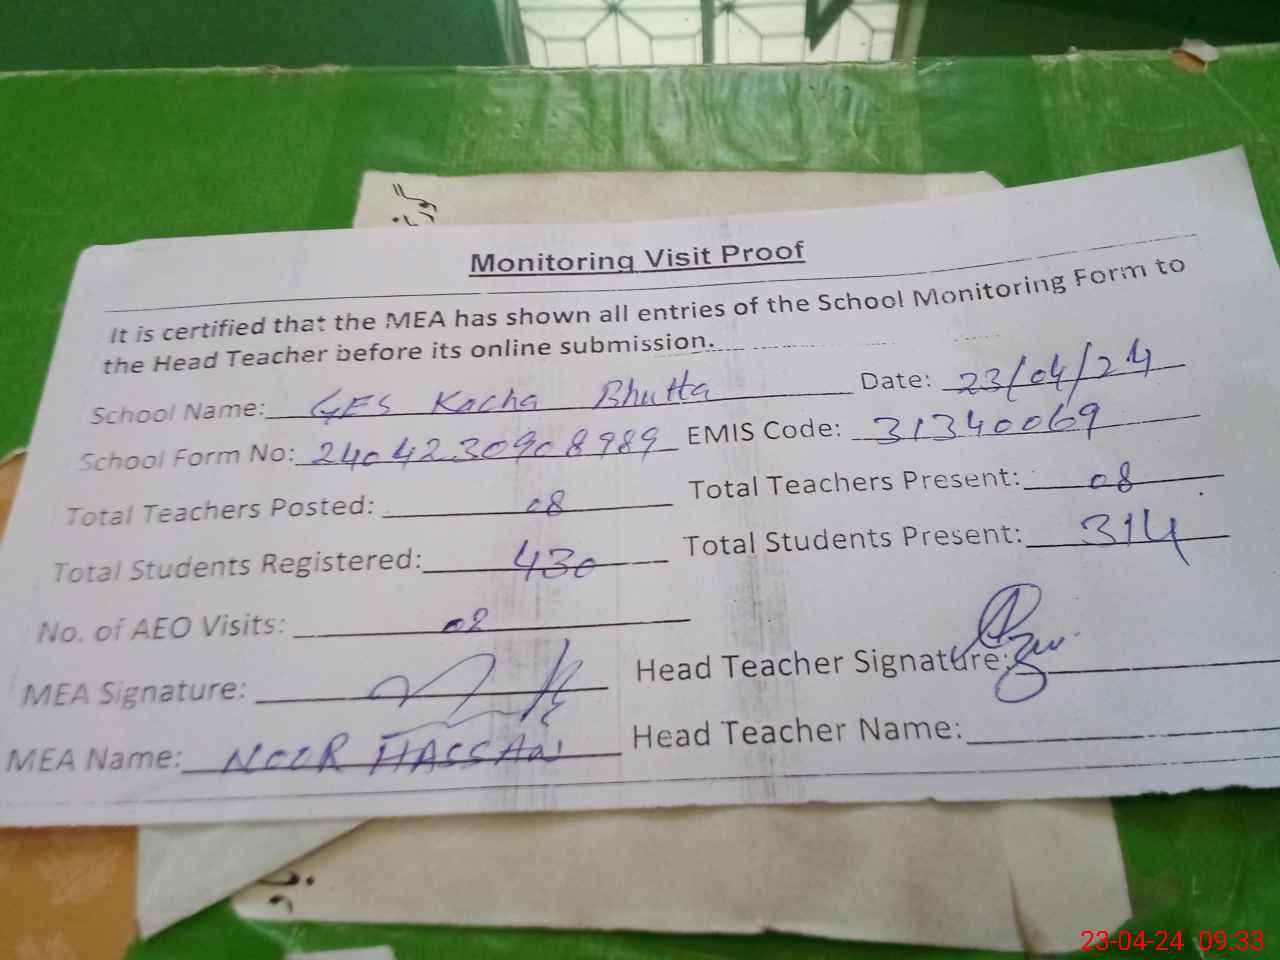 Monitoring Visit Proof
It is certified that the MEA has shown all entries of the School Monitoring Form to
the Head Teacher before its online submission.
School Name: GES Kacha Bhutta Date: 23/04/24
School Form No: 2404230908989 EMIS Code: 31340069
Total Teachers Posted: 08 Total Teachers Present: 08
Total Students Registered: 430 Total Students Present: 314
No. of AEO Visits: 02
MEA Signature: Head Teacher Signature:
MEA Name: NOOR HASSAN Head Teacher Name:
23-04-24 09:33